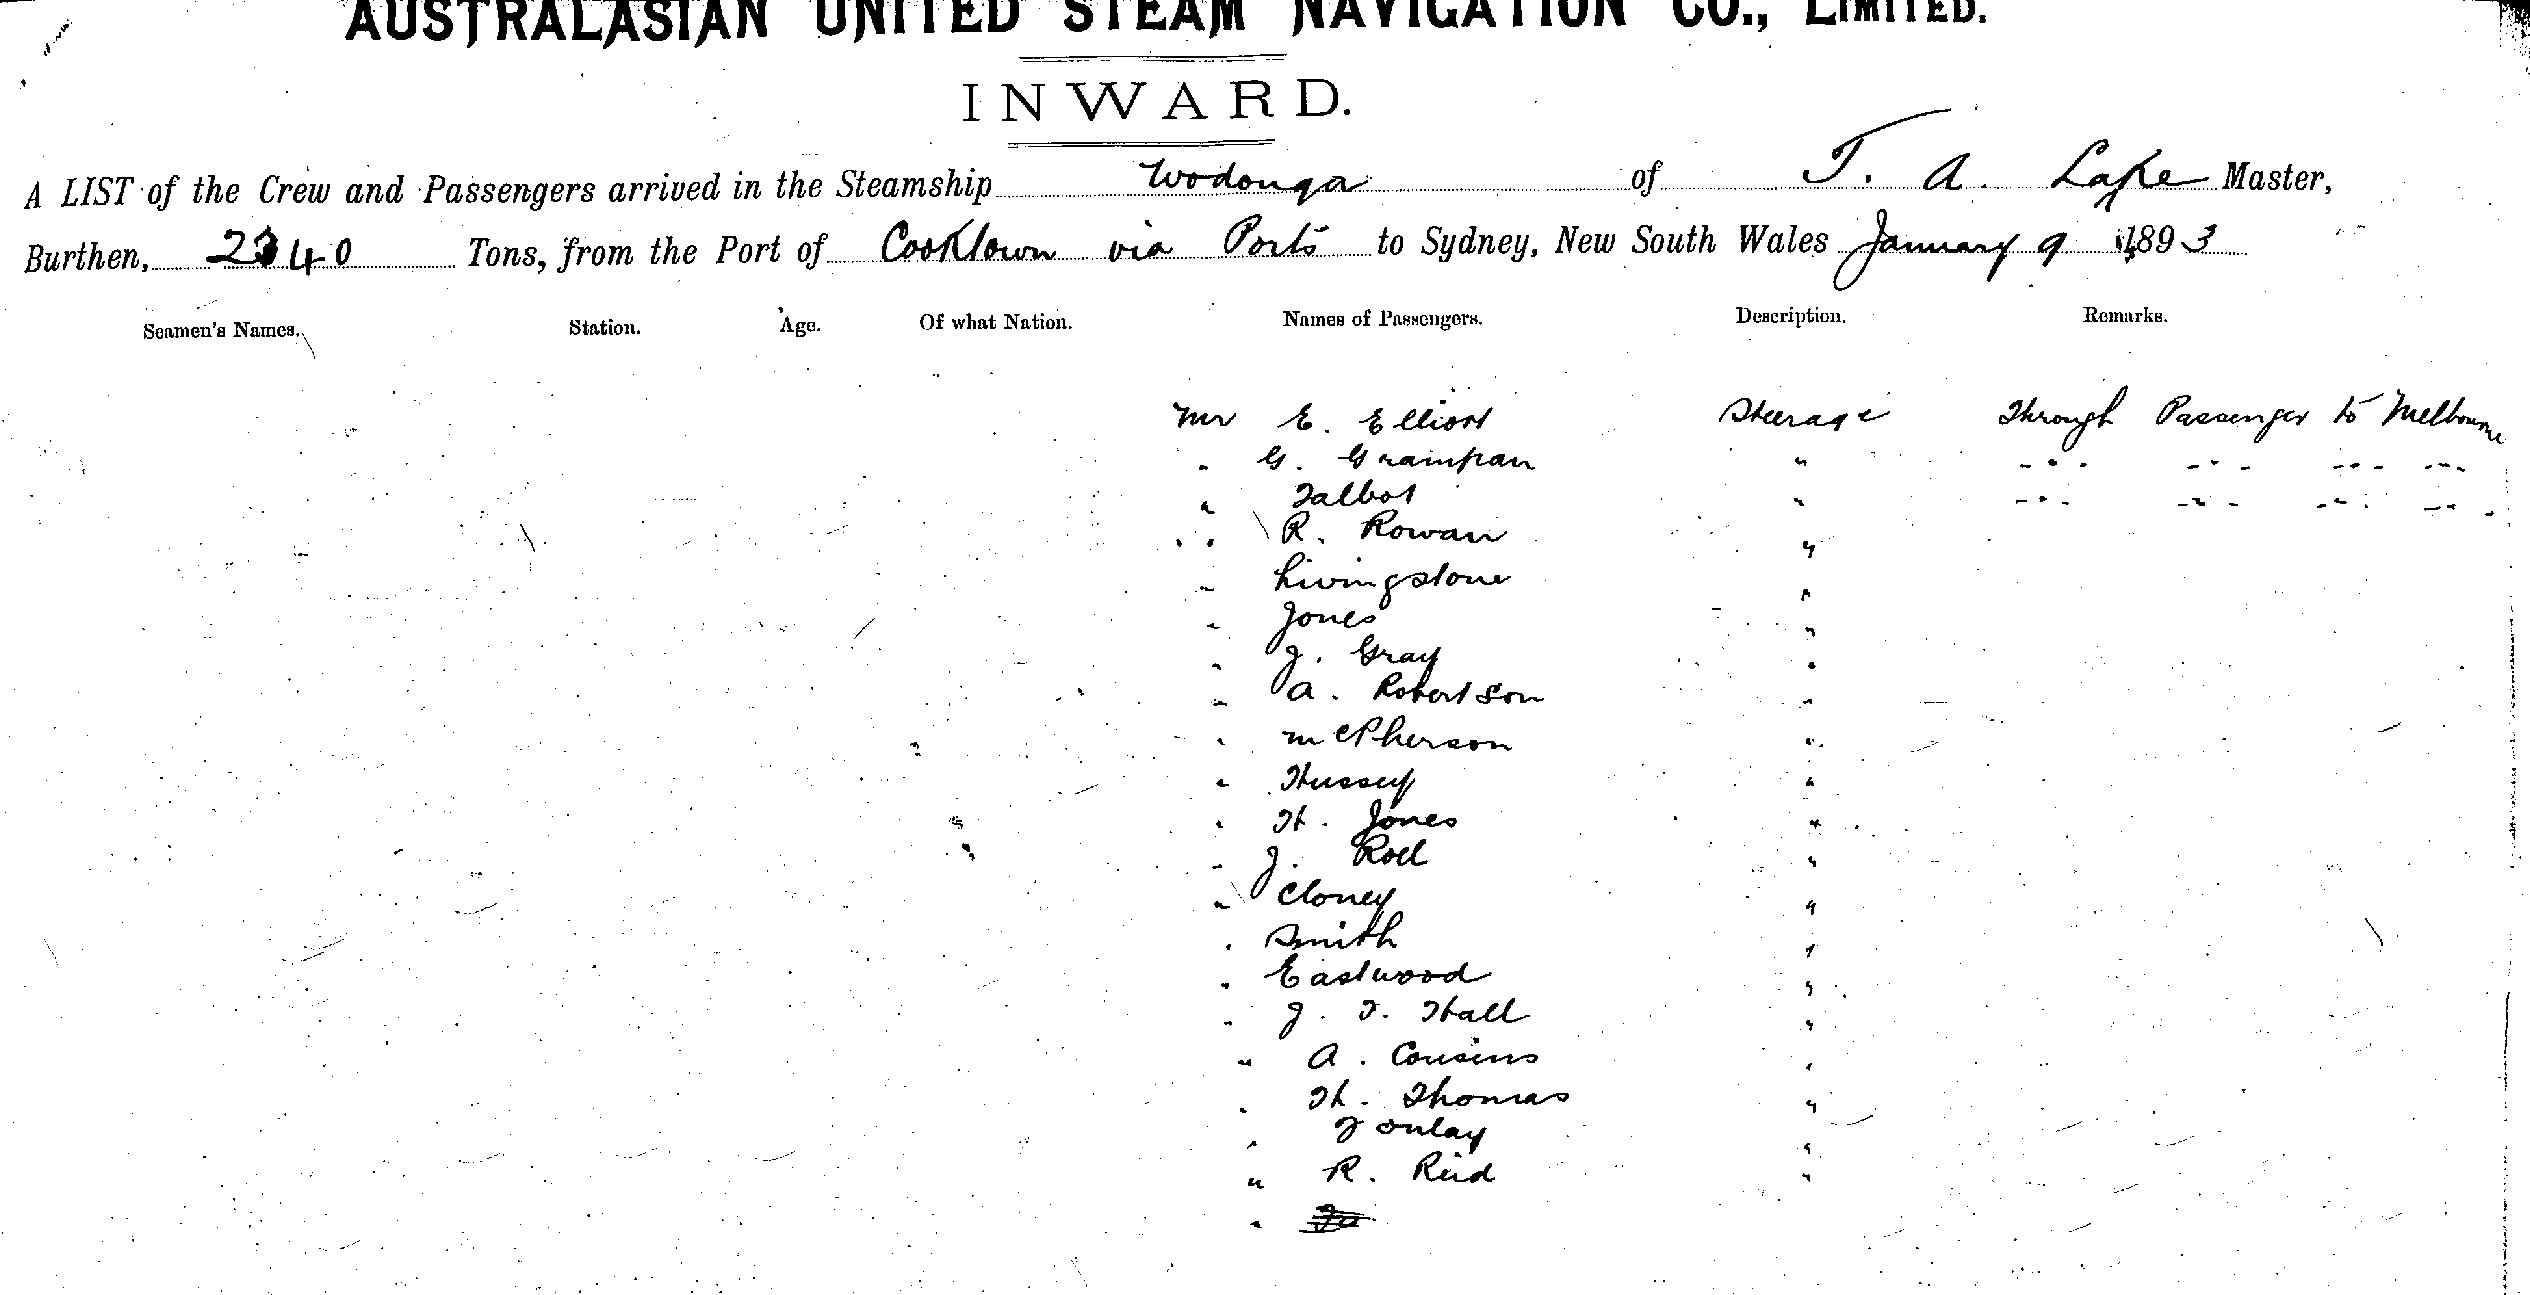 AUSTRALASIAN UNITED STEAM NAVIGATION CO., LIMITED.
INWARD.
A LIST of the Crew and Passengers arrived in the Steamship Wodonga of T. A. Lake Master,
Burthen, 2340 Tons, from the Port of Cooktown via Ports to Sydney, New South Wales January 9 1893
Seamen's Names. Station. Age. Of what Nation. Names of Passengers. Description. Remarks.
Mr E. Elliott Steerage Through Passenger to Melbourne
" G. Grampan " " " " "
" Talbot " " " " "
" R. Rowan "
" Livingstone "
" Jones "
" J. Gray "
" A. Robertson "
" McPherson "
" Hussey "
" H. Jones "
" J. "
" Cloney "
" Smith "
" Eastwood "
" J. F. Hall "
" A. Cousins "
" H. Thomas "
" "
" R. Reid "
"